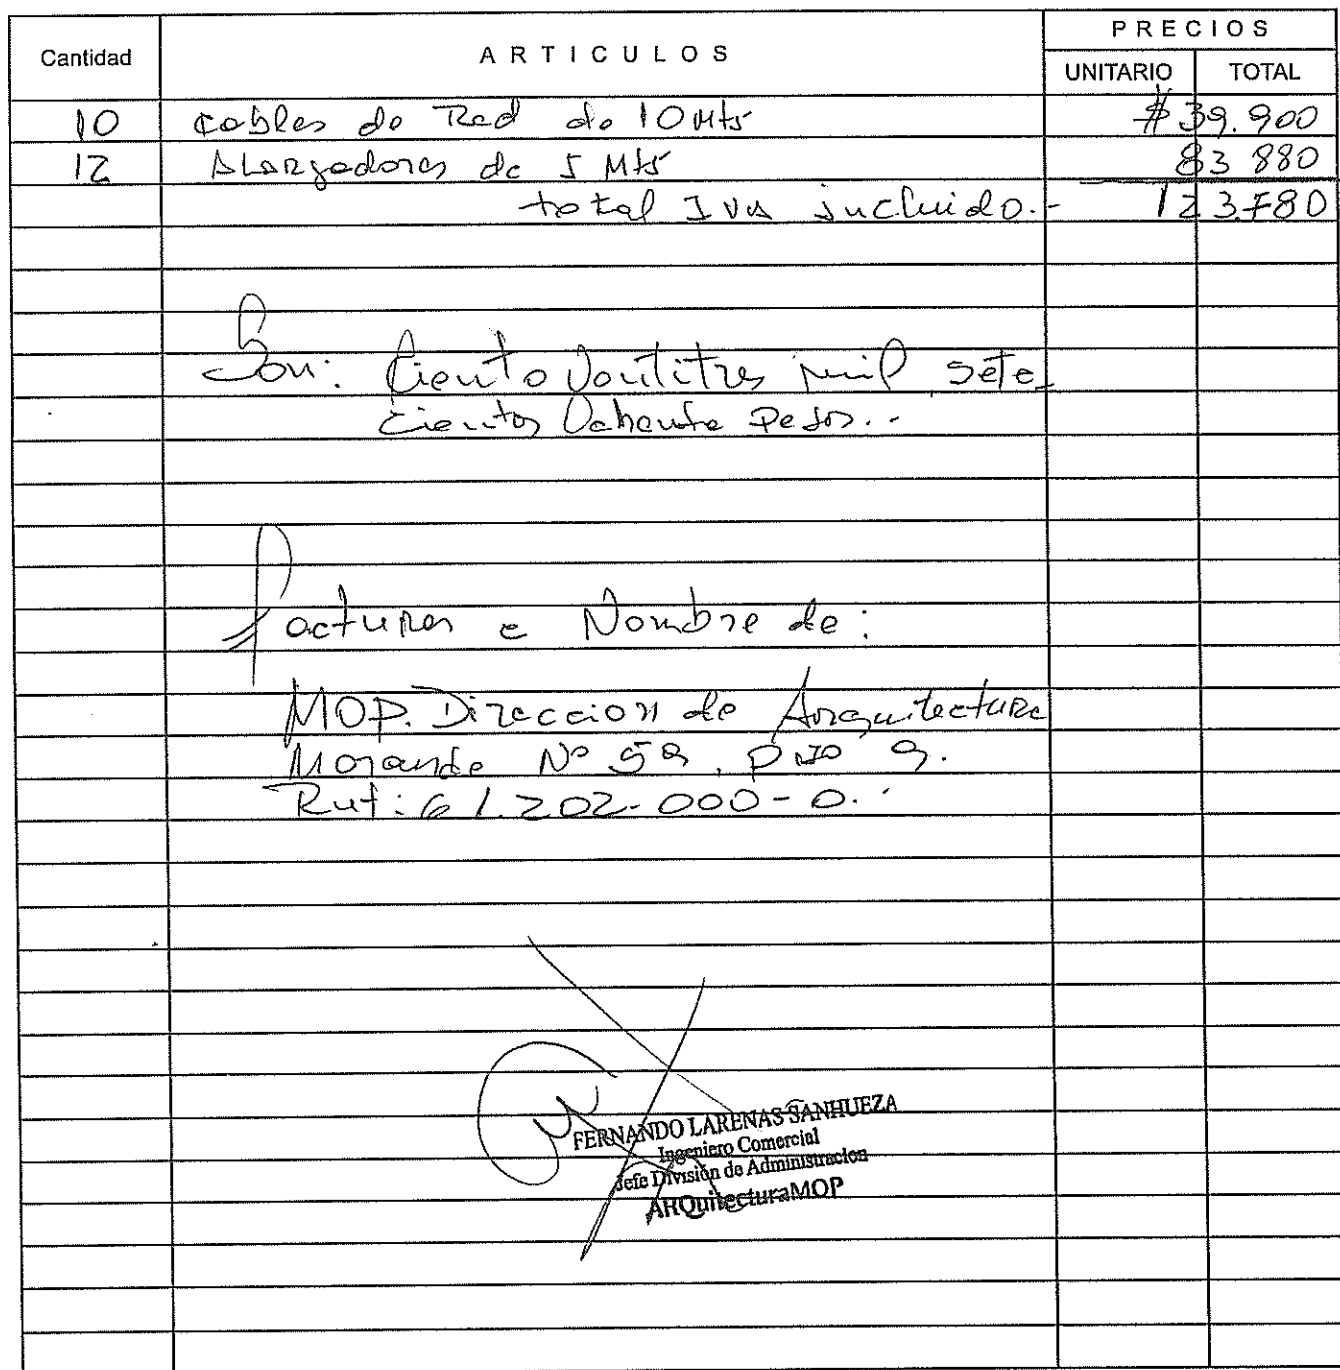 Cantidad ARTICULOS PRECIOS
UNITARIO TOTAL
10 cables de Red de 10 Mts $39.900
12 Alargadores de 5 Mts 83 880
total IVA incluido.- 123.780
Son: Ciento Veintitres mil sete-
cientos Ochenta Pesos.-
facturar a Nombre de:
MOP. Direccion de Arquitectura
Morande Nº 59, Piso 9.
Rut: 61.202-000-0.-
FERNANDO LARENAS SANHUEZA
Ingeniero Comercial
Jefe División de Administracion
ARQuitecturaMOP